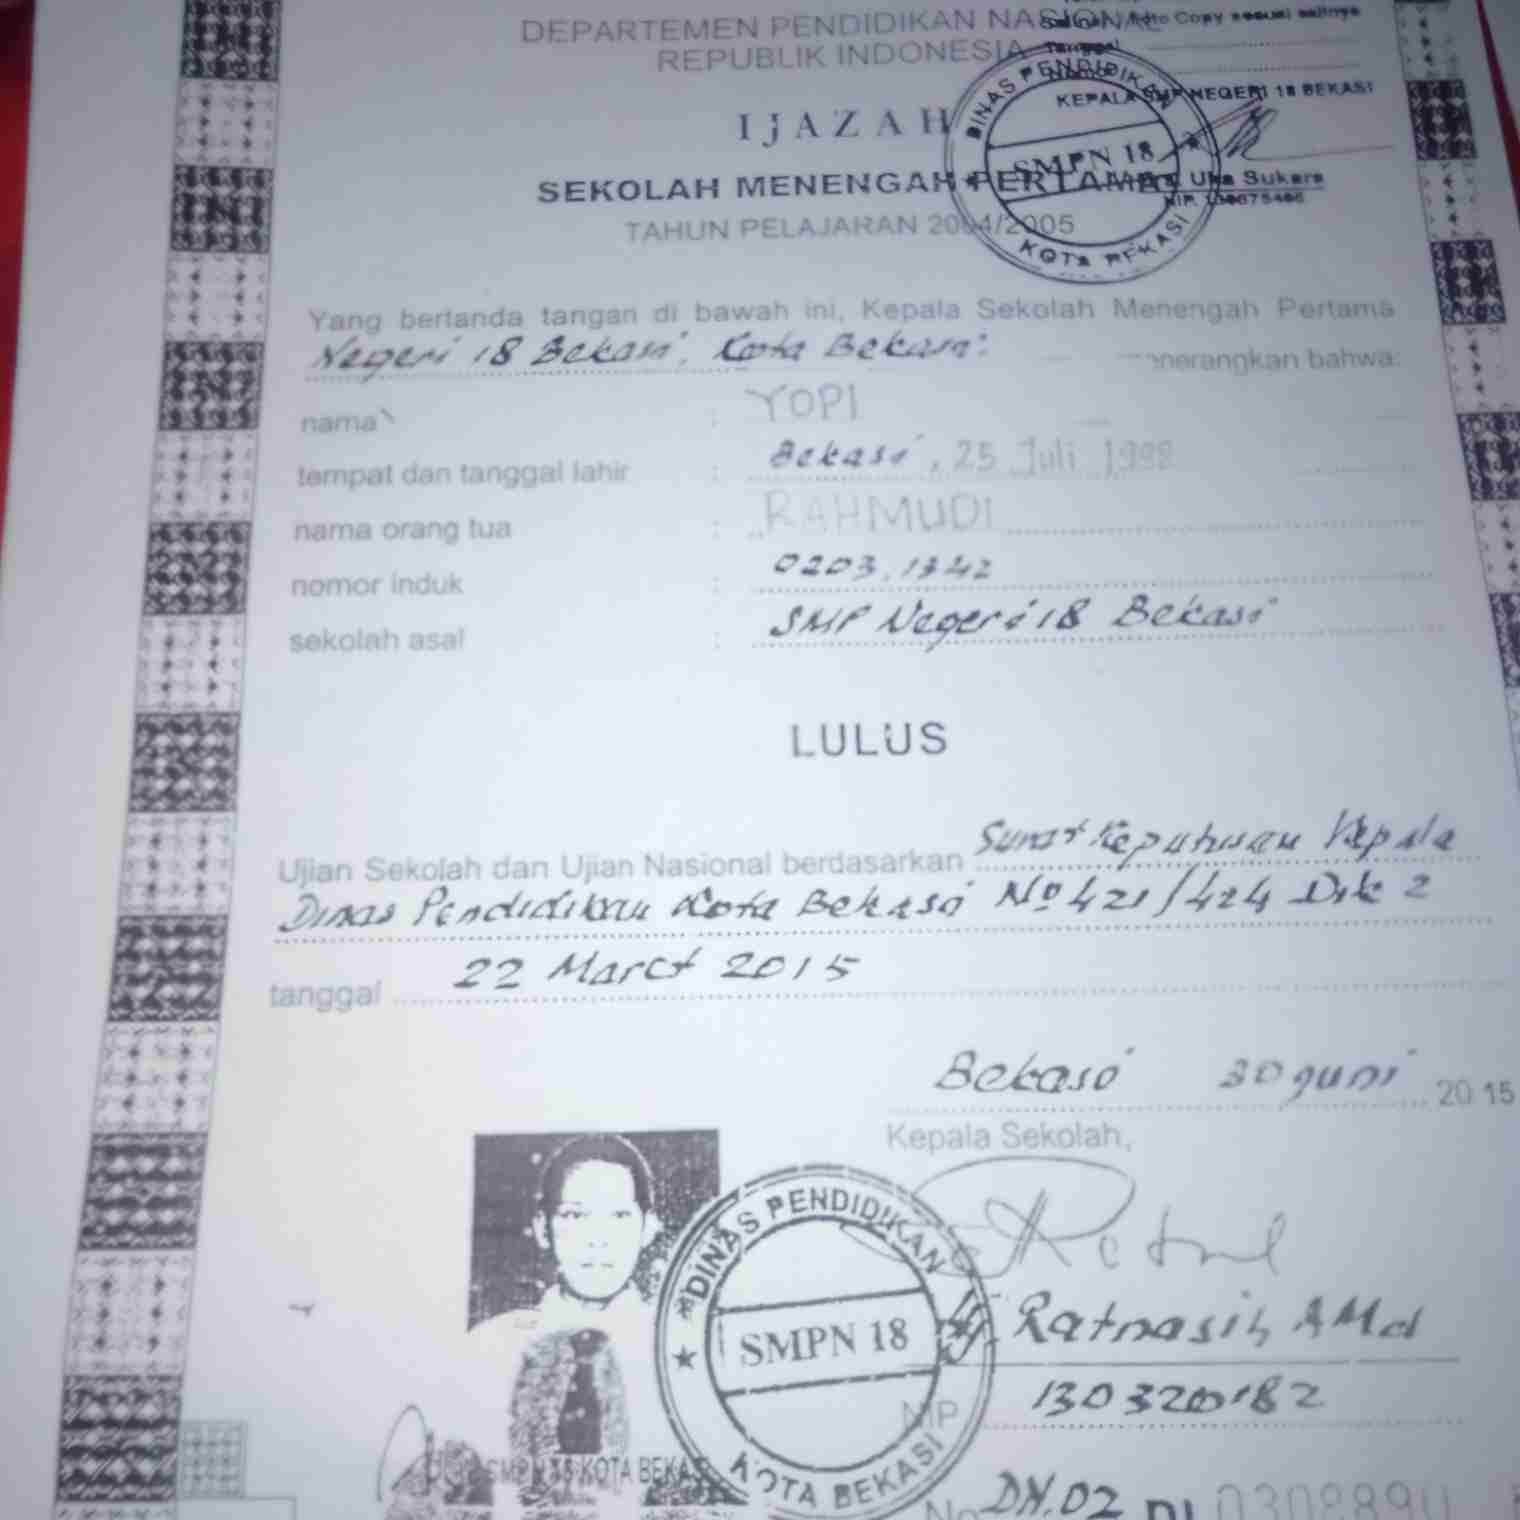 DEPARTEMEN PENDIDIKAN NASIONAL
REPUBLIK INDONESIA
Copy sesuai aslinya
Tanggal
KEPALA SMP NEGERI 18 BEKASI
Sukara
NIP.
DINAS PENDIDIKAN
SMPN 18
KOTA BEKASI
IJAZAH
SEKOLAH MENENGAH PERTAMA
TAHUN PELAJARAN 2004/2005
Yang bertanda tangan di bawah ini, Kepala Sekolah Menengah Pertama
Negeri 18 Bekasi, Kota Bekasi: menerangkan bahwa:
nama : YOPI
tempat dan tanggal lahir : Bekasi, 25 Juli 1998
nama orang tua : RAHMUDI
nomor induk : 0203.1342
sekolah asal : SMP Negeri 18 Bekasi
LULUS
Ujian Sekolah dan Ujian Nasional berdasarkan Surat Keputusan Kepala
Dinas Pendidikan Kota Bekasi No 421/424 Dik 2
tanggal 22 Maret 2015
Bekasi 30 Juni 2015
Kepala Sekolah,
DINAS PENDIDIKAN
SMPN 18
KOTA BEKASI
Hj. Ratnasih AMd
NIP 130320182
SMPN 18 KOTA BEKASI
No DN.02 DI 0308890